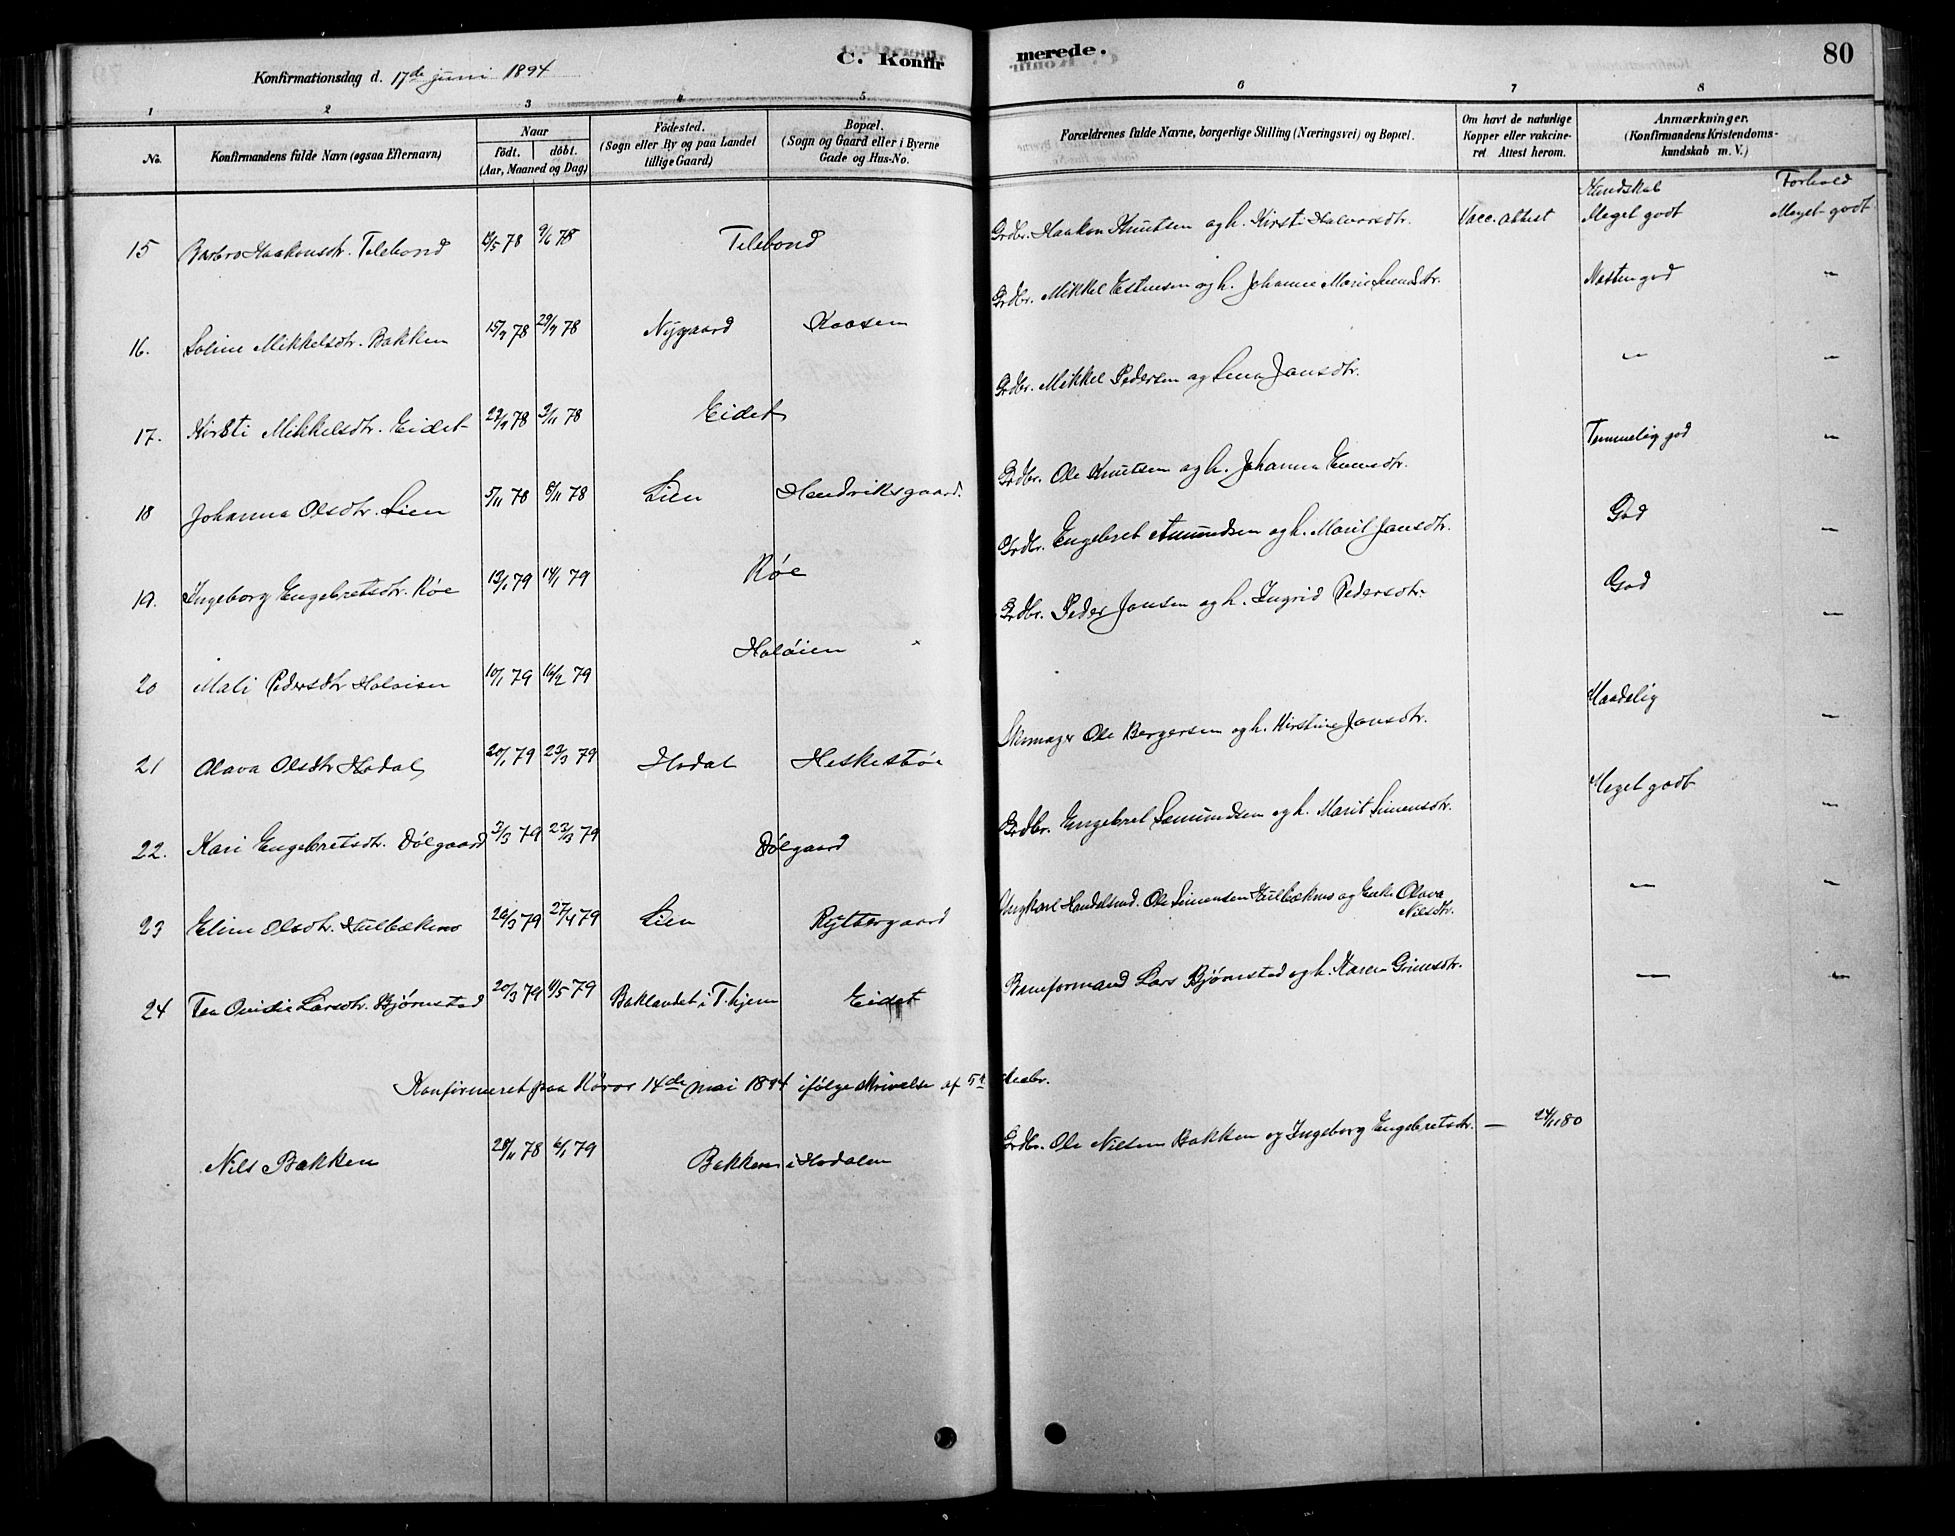 Konfirmationsdag d. 17de juni 1894
C. Konfirmerede.
80
1 2 3 4 5 6 7 8
No.
Konfirmandens fulde Navn (ogsaa Efternavn)
Naar
födt. döbt.
(Aar, Maaned og Dag)
Födested.
(Sogn eller By og paa Landet
tillige Gaard)
Bopæl.
(Sogn og Gaard eller i Byerne
Gade og Hus-No.
Forældrenes fulde Navne, borgerlige Stilling (Næringsvei) og Bopæl.
Om havt de naturlige
Kopper eller vakcine-
ret Attest herom.
Anmærkninger.
(Konfirmandens Kristendoms-
kundskab m. V.)
Kundskab Forhold
15 Barbro Haakonsdtr. Telebond /5 78 9/6 78 Telebond Grdbr. Haakon Knutsen og h. Kirsti Halvorsdtr. Vacc. attest Meget godt Meget godt
16. Soline Mikkelsdtr. Bakken 15/4 78 29/4 78 Nygaard Kaasen Grdbr. Mikkel Estensen og h. Johanne Marie Svendsdtr. Næsten god "
17. Kirsti Mikkelsdtr. Eidet 78 3/11 78 Eidet Grdbr. Mikkel Pedersen og Lena Jansdtr. " "
18 Johanna Olsdtr. Lien 5/11 78 6/11 78 Lien Hendriksgaard. Grdbr. Ole Knutsen og h. Johanna Evensdtr. Temmelig god "
19. Ingeborg Engebretsdtr. Røe 13/1 79 14/1 79 Røe Grdbr. Engebret Amundsen og h. Marit Jansdtr. God "
20 Mali Pedersdtr Holøien 10/1 79 16/2 79 Holøien Grdbr. Peder Jonsen og h. Ingrid Pedersdtr. God "
21 Olava Olsdtr Hodal 20/1 79 23/3 79 Hodal Heskestøe Skomager Ole Bergersen og h. Kirstine Jonsdtr. Maadelig "
22. Kari Engebretsdtr. Dølgaard 3/3 79 23/3 79 Dølgaard Grdbr. Engebret Semundsen og h. Marit Simensdtr. Meget godt "
23 Eline Olsdtr. Kulbækmo 20/3 79 27/4 79 Lien Ryttergaard Ungkarl Handelsmd. Ole Simensen Kulbækmo og Enke Olava
Nilsdtr. " "
24 Tea Ovidie Larsdtr. Bjørnstad 20/3 79 4/5 79 Baklandet i T.hjem Eidet Baneformand Lars Bjørnstad og h. Karen Grimsdtr. " "
Konfirmeret paa Røros 14de mai 1894 ifølge skrivelse af 5te
Nils Bakken 28/11 78 6/1 79 Bakken i Hodalen Grdbr. Ole Nilsen Bakken og Ingeborg Engebretsdtr. — 24/11 80